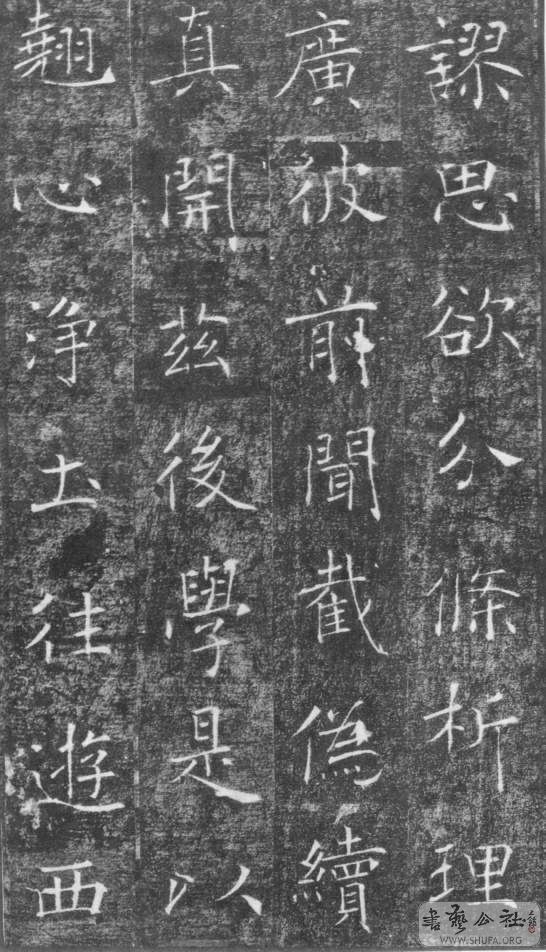 謬思欲分條析理
廣彼前聞截偽續
真開茲後學是以
翹心淨土往遊西
書藝公社
WWW.SHUFA.ORG